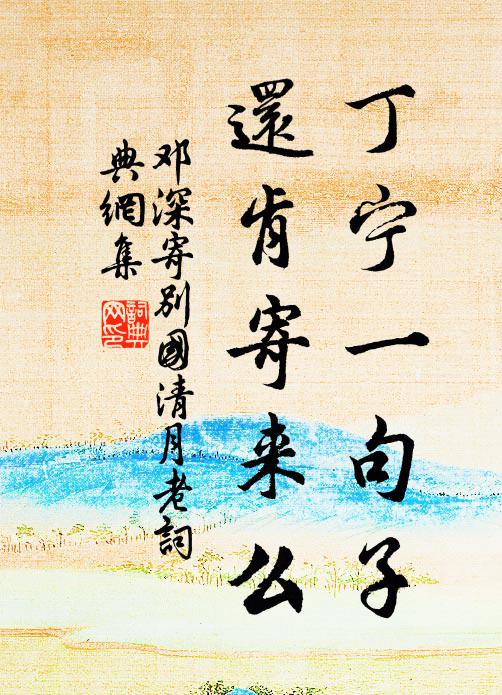 丁宁一句子
還肯寄来么
邓深寄别國清月老詞
典網集
詞典
网印